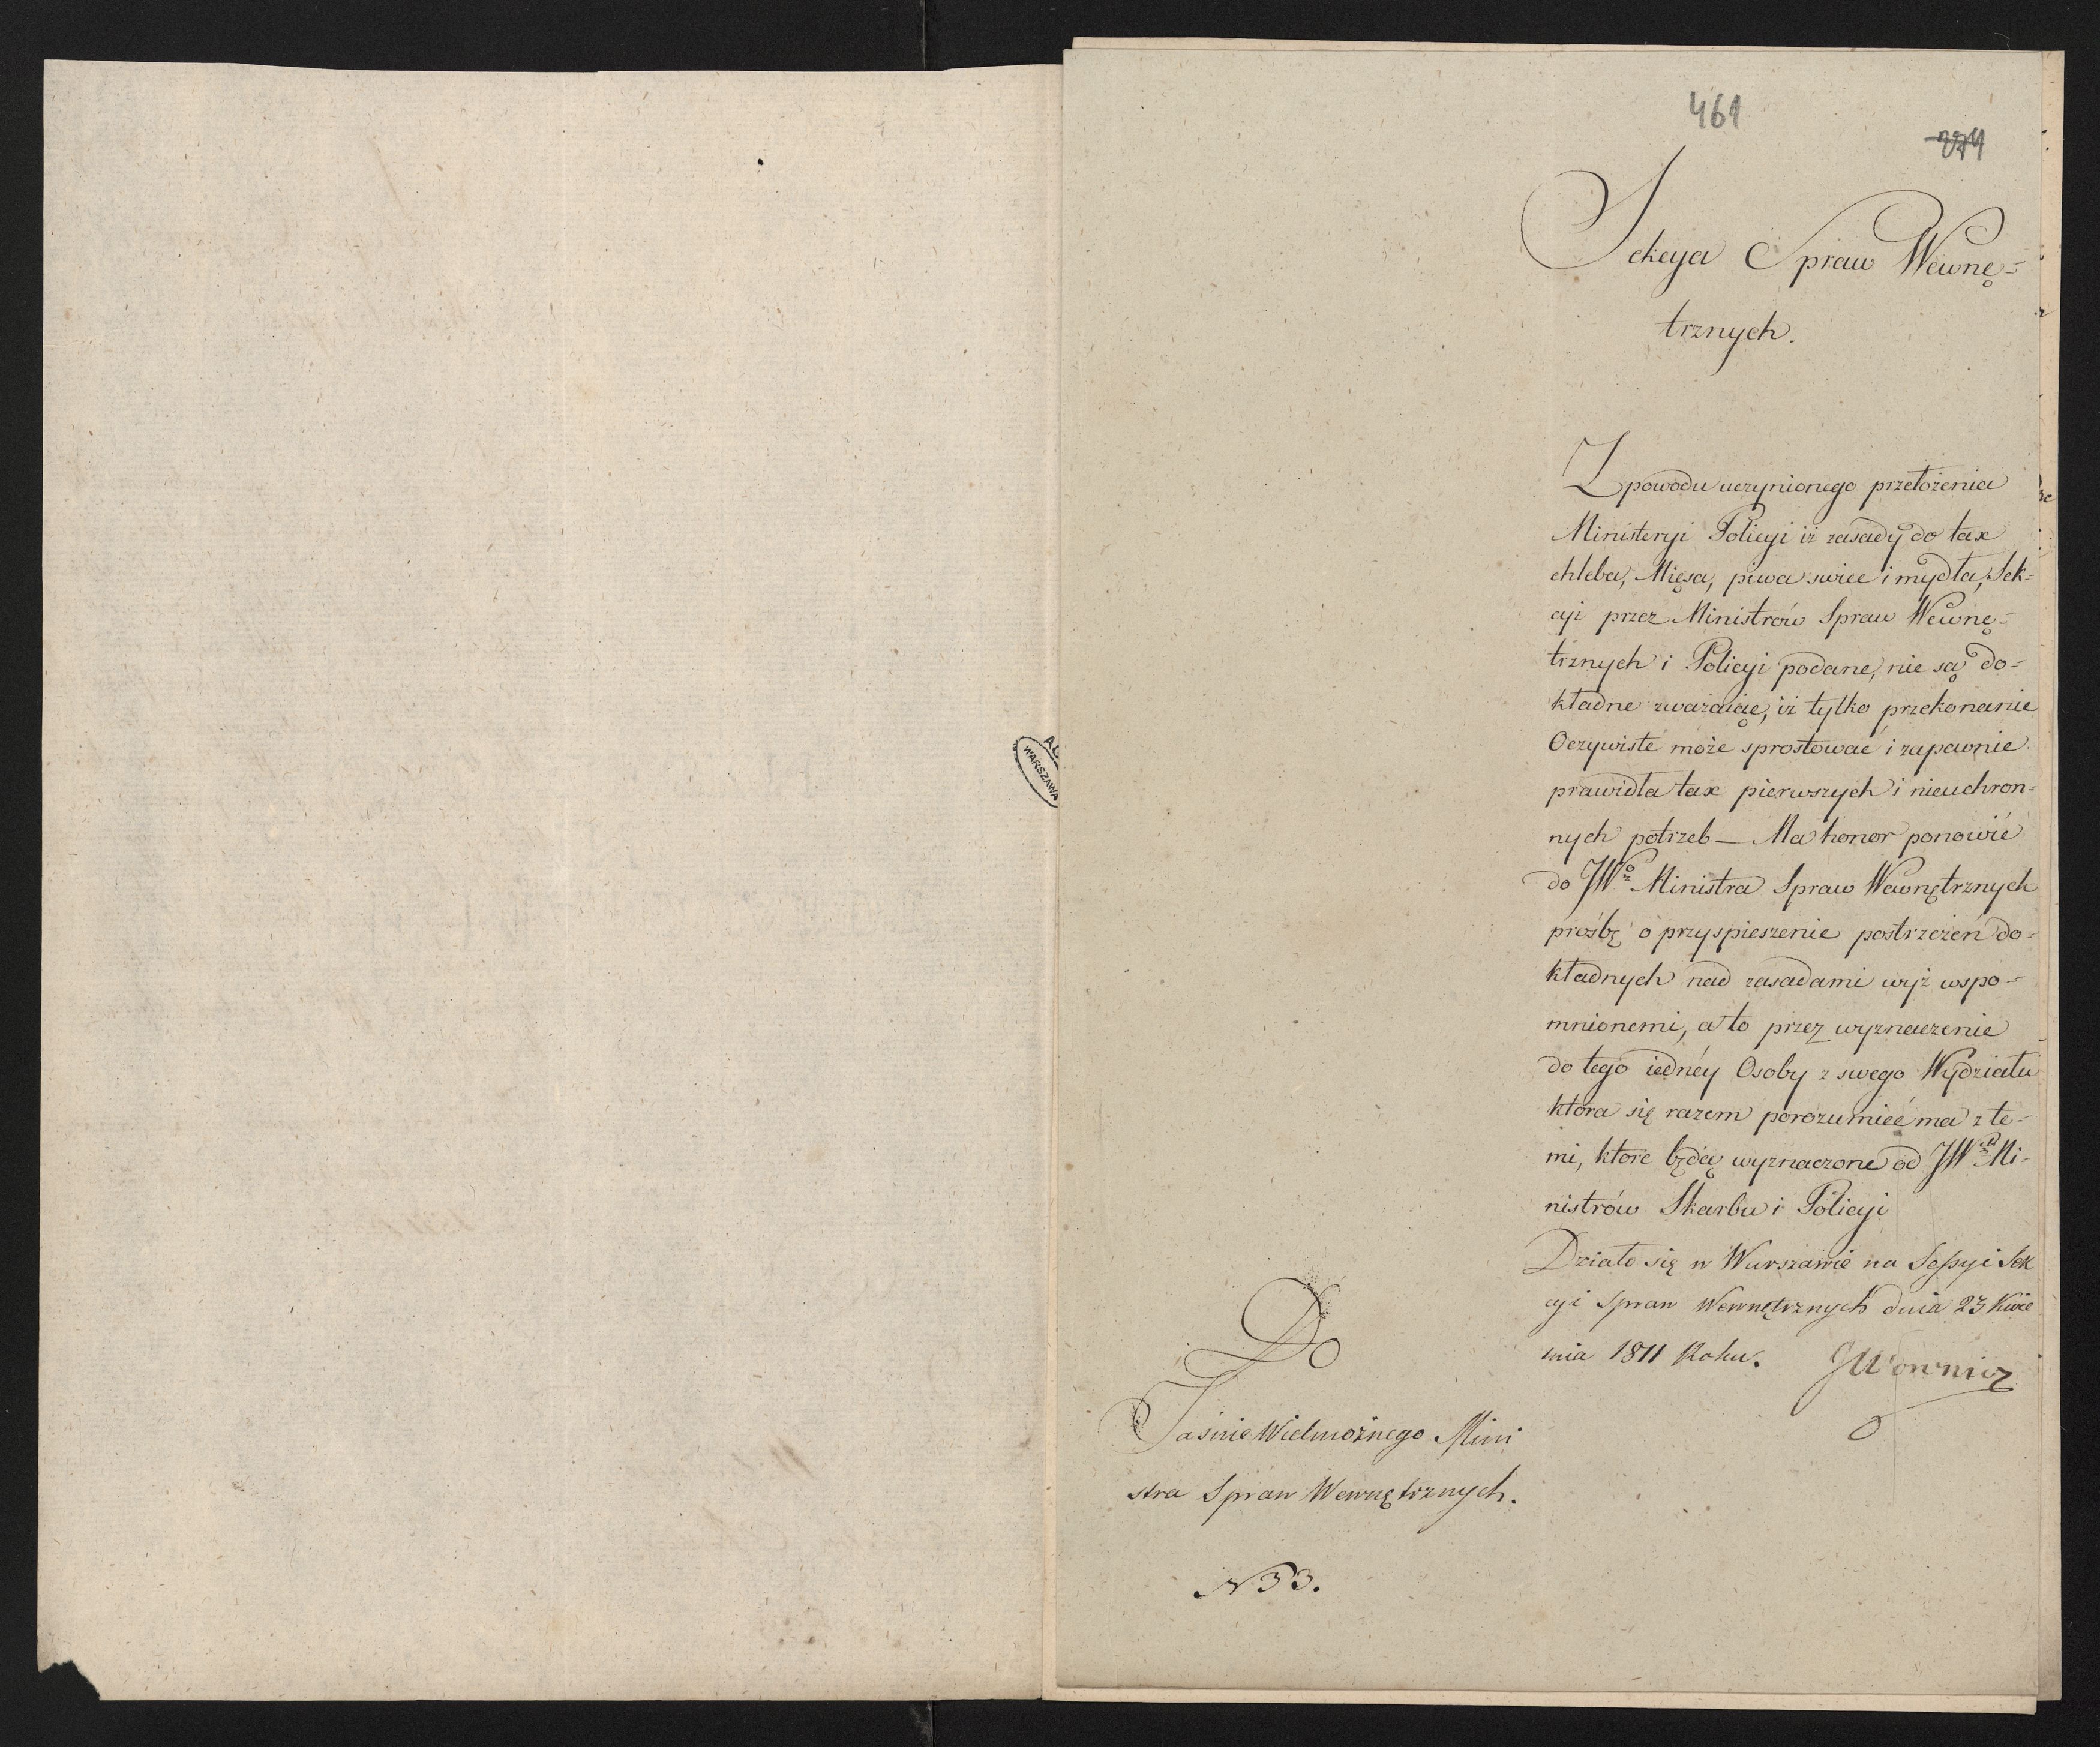 461
Sekcya Spraw Wewnę-
trznych.
Z powodu uczynionego przełożenia
Ministeryi Policyi iż zasady do tax
chleba, Mięsa, piwa swiec i mydła, Sek-
cyi przez Ministrów Spraw Wewnę-
trznych i Policyi podane, nie są do-
kładne zważaiąc, iż tylko przekonanie
Oczywiste może sprostować i zapewnie
prawidła tax pierwszych i nieuchron-
nych potrzeb — Ma honor ponowić
do JWo Ministra Spraw Wewnętrznych
prośbę o przyspieszenie postrzeżeń do-
kładnych nad zasadami wyż wspo-
mnionemi, a to przez wyznaczenie
do tego iednéy Osoby z swego Wydziału
która się razem porozumieć ma z te-
mi, które będą wyznaczone od JW Mi-
nistrów Skarbu i Policyi
Działo się w Warszawie na Sessyi Sek
cyi Spraw Wewnętrznych dnia 23 Kwie
tnia 1811 Roku.
Do
Jaśnie Wielmożnego Mini
stra Spraw Wewnętrznych.
N 33.
WARSZAWA